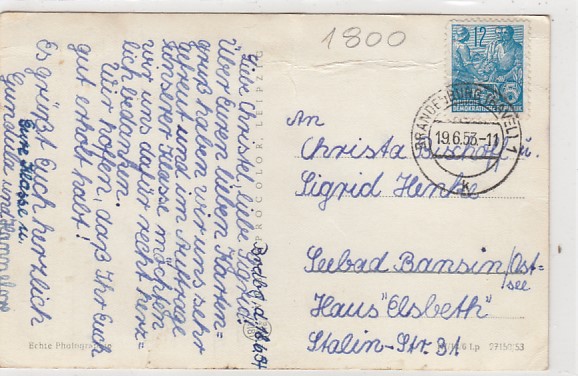 1800
12
DEUTSCHE
DEMOKRATISCHE
BRANDENBURG (HAVEL) 1
19.6.53-11
k
An
Christa Bischoff u.
Sigrid Henke
Seebad Bansin/Ost-
see
Haus "Elsbeth"
Stalin-Str. 31
Liebe Christel, liebe Sigrid!
Über Euren lieben Karten-
gruß haben wir uns sehr
gefreut und im Auftrage
unserer Klasse möchten
wir uns dafür recht herz-
lich bedanken.
Wir hoffen, daß Ihr Euch
gut erholt habt!
Es grüßt Euch herzlich
Eure Klasse u.
Gundula und Hannelore
PROCOLOR, LEIPZIG
Echte Photographie
Lp 27150/53